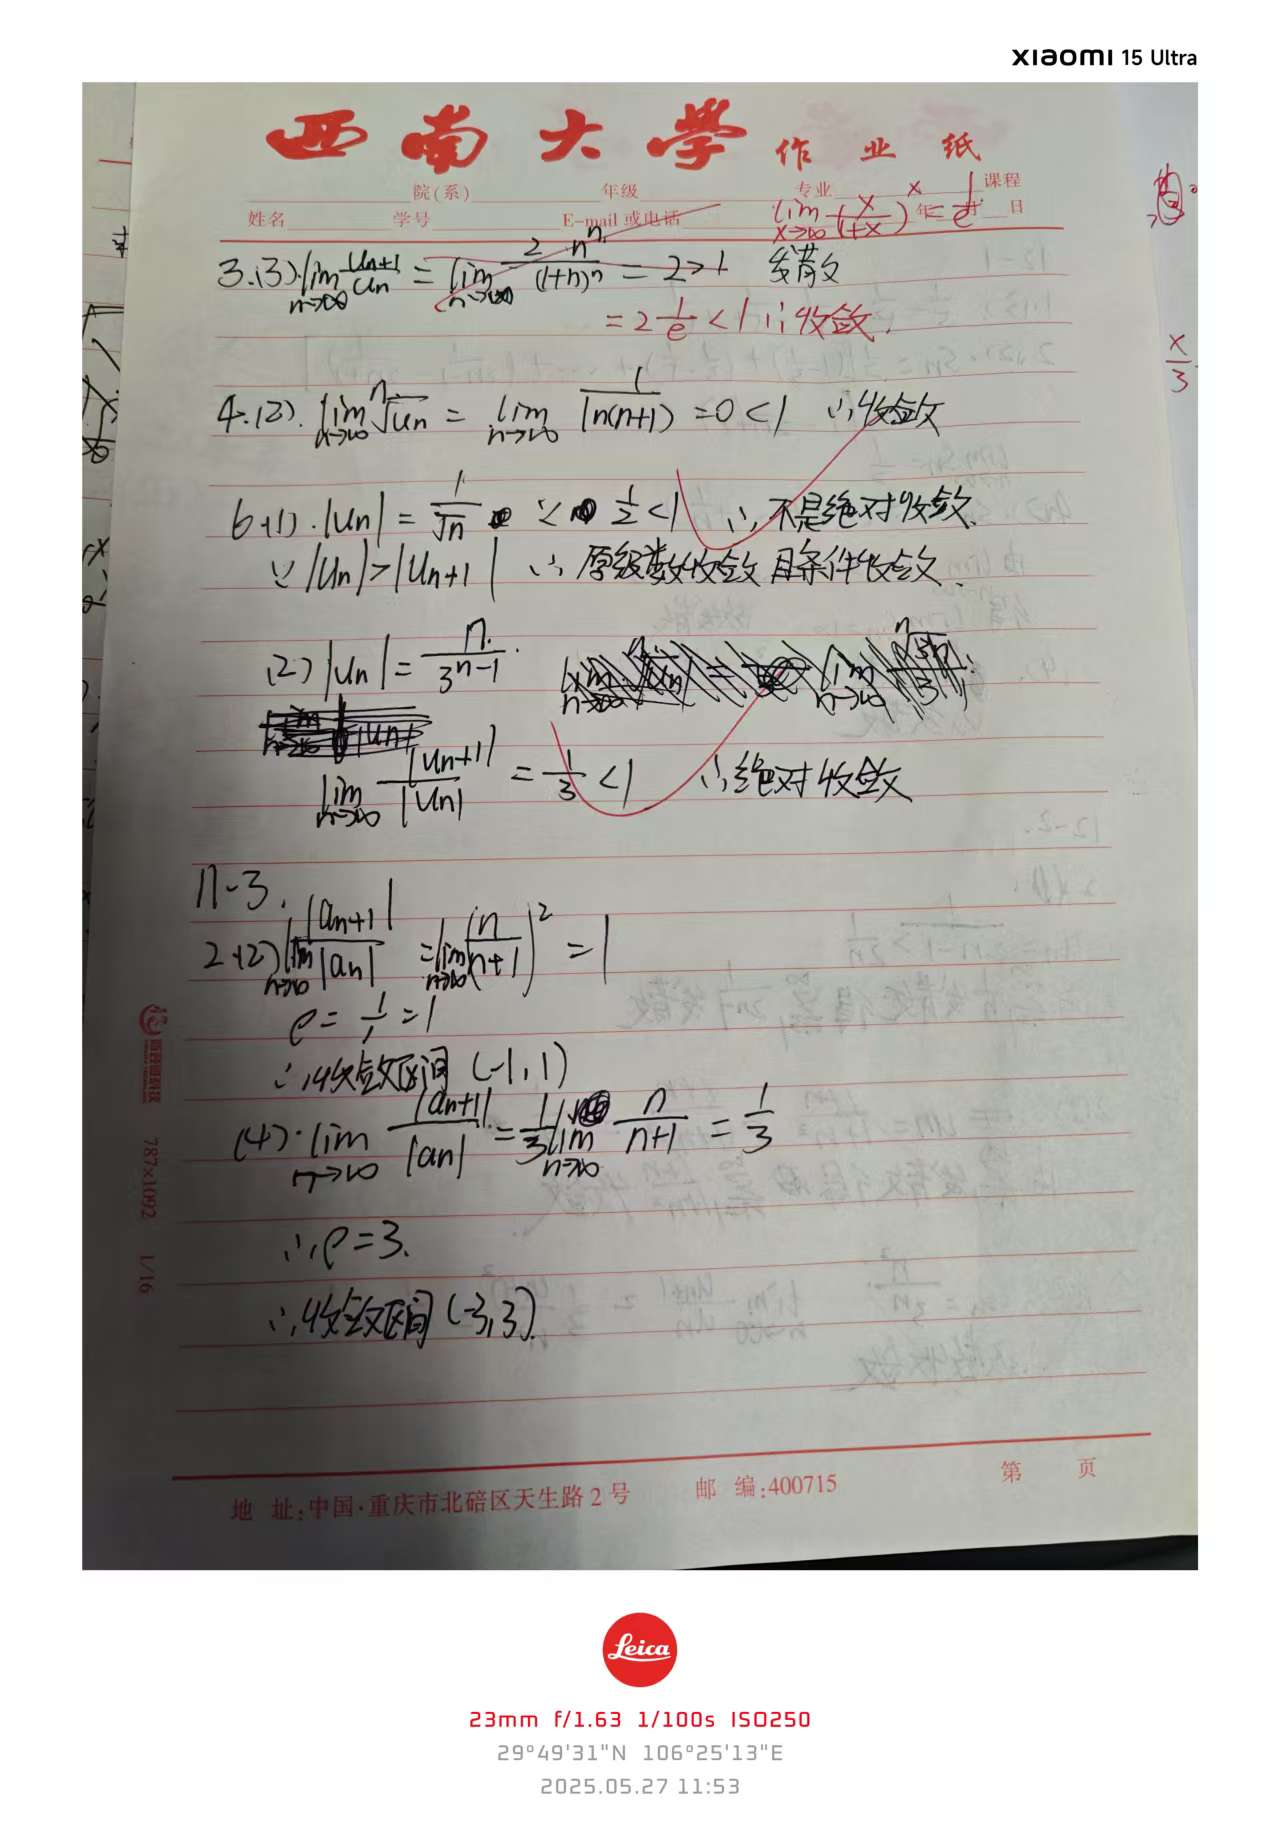 XIAOMI 15 Ultra
西南大学 作业纸
院(系) 年级 专业 课程
姓名 学号 E-mail 或电话 年 日
lim x→∞ (x/(1+x))^x = 1/e
3.(3). lim n→∞ Un+1/Un = lim n→∞ 2 n^n/(1+n)^n = 2>1 发散
= 2 1/e < 1 ∴收敛.
x/3
4.(2). lim n→∞ ⁿ√Un = lim n→∞ 1/ln(n+1) = 0 < 1 ∴收敛
6.(1). |Un| = 1/√n ∵ 1/2 < 1 ∴不是绝对收敛.
∵ |Un| > |Un+1| ∴原级数收敛 且条件收敛.
(2) |Un| = n/3^(n-1)
lim n→∞ |Un+1|/|Un| = 1/3 < 1 ∴绝对收敛
11-3.
2.(2) lim n→∞ |an+1|/|an| = lim n→∞ (n/(n+1))² = 1
ρ = 1/1 = 1
∴收敛区间 (-1,1)
(4). lim n→∞ |an+1|/|an| = 1/3 lim n→∞ n/(n+1) = 1/3
∴ρ=3.
∴收敛区间 (-3,3).
787×1092 1/16
第 页
地 址:中国·重庆市北碚区天生路2号 邮 编:400715
Leica
23mm f/1.63 1/100s ISO250
29°49'31"N 106°25'13"E
2025.05.27 11:53